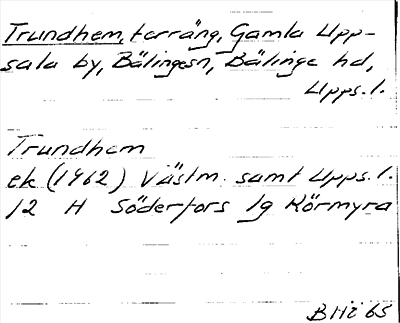 Trundhem, terräng, Gamla Upp-
sala by, Bälingesn, Bälinge hd,
Upps. l.
Trundhem
ek (1962) Västm. samt Upps. l.
12 H Söderfors lg Körmyra
BHä 65